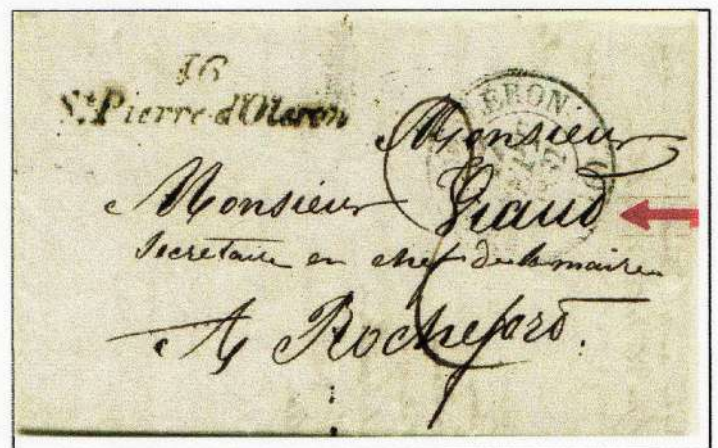 16
St Pierre-d'Oleron
Monsieur
Monsieur Viaud
Secretaire en chef de la mairie
A Rochefort.